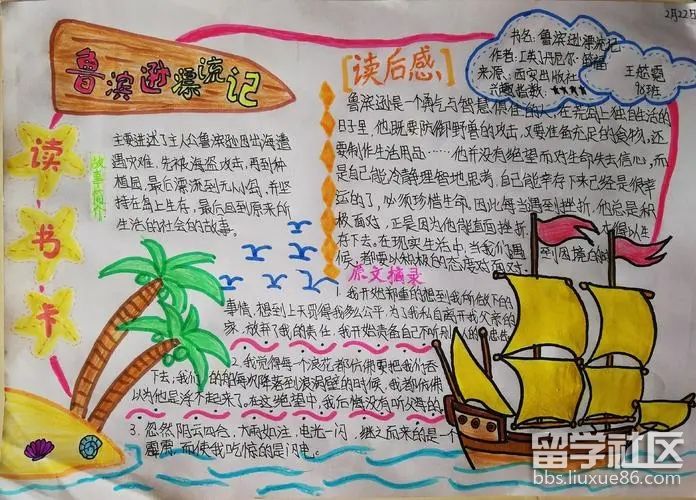 2月22日
鲁滨逊漂流记
书名:鲁滨逊漂流记
作者:[英]丹尼尔·笛福
来源:西安出版社
兴趣指数:★★★★
王
班
读书卡
故事简介
主要讲述了主人公鲁滨逊因出海遭
遇灾难,先被海盗攻击,再到种
植园,最后漂流到无人岛,并坚
持在岛上生存,最后回到原来所
生活的社会的故事。
[读后感]
鲁滨逊是一个勇气与智慧俱佳的人,在荒岛上独自生活的
日子里,他既要防御野兽的攻击,又要准备充足的食物,还
要制作生活用品……他并没有绝望而对生命失去信心,而
是自己能冷静理智地思考,自己能幸存下来已经是很幸
运的了,必须珍惜生命。因此每当遇到挫折,他总是积
极面对,正是因为他能直面挫折,
存下去。在现实生活中,当我们遇到困
候,都要以积极的态度对面对
原文摘录
1.我开始郑重的想到我所放下的
事情,想到上天罚得我多么公平,为了我私自离开我父亲的
家,放弃了我的责任,我开始责备自己不听别人的忠告
2.我觉得每个浪花都仿佛要把我们吞
下去,我们的船每次降落到浪涡里的时候,我都仿佛
以为他是浮不起来了。在这绝望中,我后悔没有听父母的。
3.忽然阴云四合,大雨如注,电光一闪,继之而来的是一个
霹雳,而使我吃惊的是闪电。
留学社区
bbs.liuxue86.com